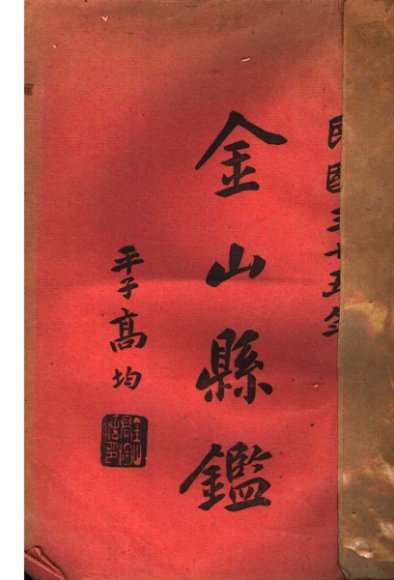 民國三十五年
金山縣鑑
平子高均